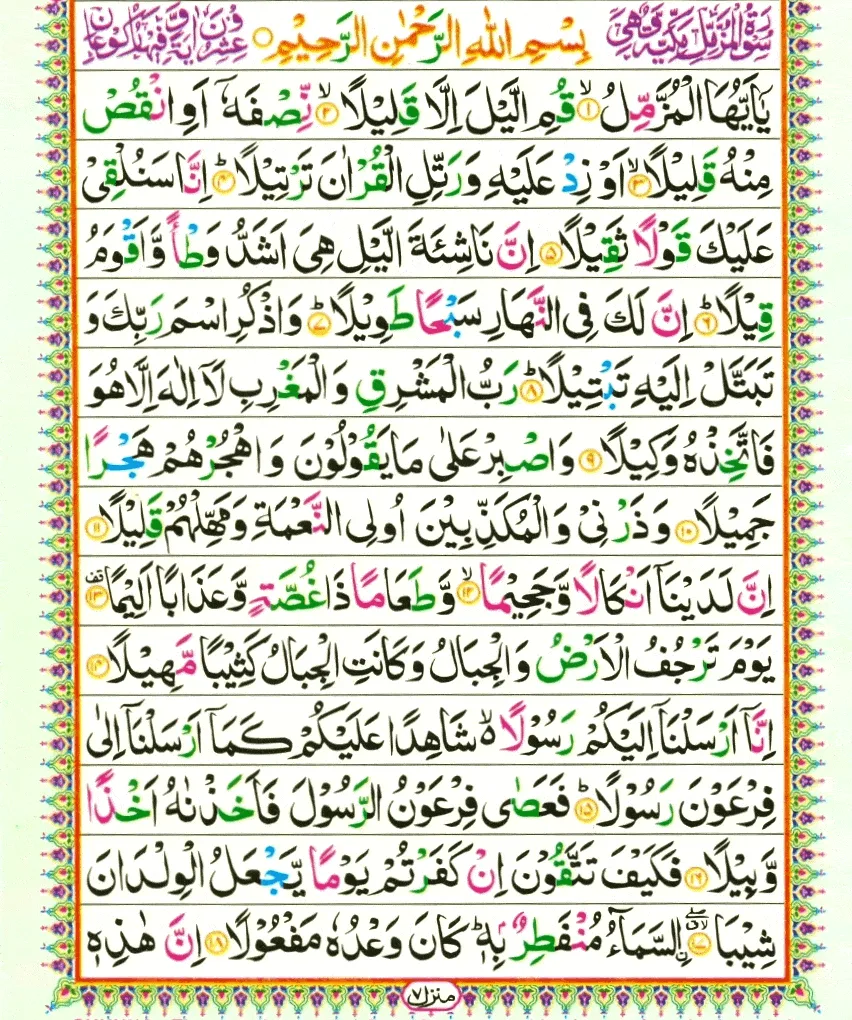 سُوْرَةُ الْمُزَّمِّلِ مَكِّيَّةٌ وَّهِىَ بِسْمِ اللّٰهِ الرَّحْمٰنِ الرَّحِيْمِ عِشْرُوْنَ اٰيَةً وَّفِيْهَا رُكُوْعَانِ
يٰۤاَيُّهَا الْمُزَّمِّلُ ۙ﴿۱﴾ قُمِ الَّيْلَ اِلَّا قَلِيْلًا ۙ﴿۲﴾ نِّصْفَهٗۤ اَوِ انْقُصْ
مِنْهُ قَلِيْلًا ۙ﴿۳﴾ اَوْ زِدْ عَلَيْهِ وَرَتِّلِ الْقُرْاٰنَ تَرْتِيْلًا ؕ﴿۴﴾ اِنَّا سَنُلْقِىْ
عَلَيْكَ قَوْلًا ثَقِيْلًا ﴿۵﴾ اِنَّ نَاشِئَةَ الَّيْلِ هِىَ اَشَدُّ وَطْاً وَّاَقْوَمُ
قِيْلًا ؕ﴿۶﴾ اِنَّ لَكَ فِى النَّهَارِ سَبْحًا طَوِيْلًا ؕ﴿۷﴾ وَاذْكُرِ اسْمَ رَبِّكَ وَ
تَبَتَّلْ اِلَيْهِ تَبْتِيْلًا ؕ﴿۸﴾ رَبُّ الْمَشْرِقِ وَالْمَغْرِبِ لَاۤ اِلٰهَ اِلَّا هُوَ
فَاتَّخِذْهُ وَكِيْلًا ﴿۹﴾ وَاصْبِرْ عَلٰى مَا يَقُوْلُوْنَ وَاهْجُرْهُمْ هَجْرًا
جَمِيْلًا ﴿۱۰﴾ وَذَرْنِىْ وَالْمُكَذِّبِيْنَ اُولِى النَّعْمَةِ وَمَهِّلْهُمْ قَلِيْلًا ﴿۱۱﴾
اِنَّ لَدَيْنَاۤ اَنْكَالًا وَّجَحِيْمًا ۙ﴿۱۲﴾ وَّطَعَامًا ذَا غُصَّةٍ وَّعَذَابًا اَلِيْمًا ﴿۱۳﴾ قف
يَوْمَ تَرْجُفُ الْاَرْضُ وَالْجِبَالُ وَكَانَتِ الْجِبَالُ كَثِيْبًا مَّهِيْلًا ﴿۱۴﴾
اِنَّاۤ اَرْسَلْنَاۤ اِلَيْكُمْ رَسُوْلًا ۙ شَاهِدًا عَلَيْكُمْ كَمَاۤ اَرْسَلْنَاۤ اِلٰى
فِرْعَوْنَ رَسُوْلًا ؕ﴿۱۵﴾ فَعَصٰى فِرْعَوْنُ الرَّسُوْلَ فَاَخَذْنٰهُ اَخْذًا
وَّبِيْلًا ﴿۱۶﴾ فَكَيْفَ تَتَّقُوْنَ اِنْ كَفَرْتُمْ يَوْمًا يَّجْعَلُ الْوِلْدَانَ
شِيْبًا ﴿۱۷﴾ اِۨلسَّمَآءُ مُنْفَطِرٌۢ بِهٖ ؕ كَانَ وَعْدُهٗ مَفْعُوْلًا ﴿۱۸﴾ اِنَّ هٰذِهٖ
منزل ۷